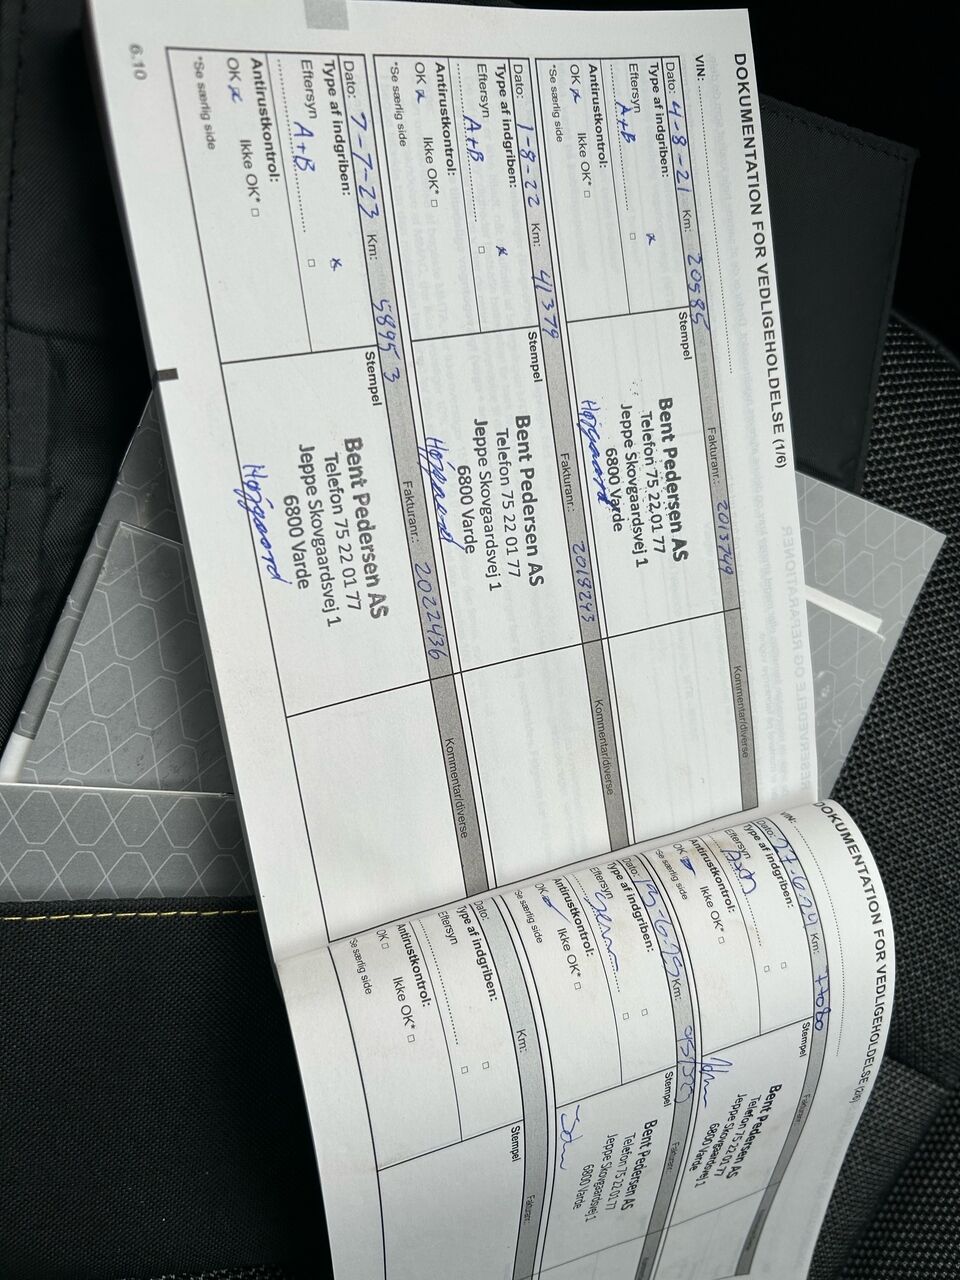 DOKUMENTATION FOR VEDLIGEHOLDELSE (1/6)
VIN:
Dato: 4-8-21 Km: 20585 Fakturanr.: 2013749 Kommentar/diverse
Type af indgriben: x Stempel
Eftersyn A+B
Antirustkontrol:
OK x Ikke OK*
*Se særlig side
Bent Pedersen AS
Telefon 75 22 01 77
Jeppe Skovgaardsvej 1
6800 Varde
Højgaard
Dato: 1-8-22 Km: 41379 Fakturanr.: 2018243 Kommentar/diverse
Type af indgriben: x Stempel
Eftersyn A+B
Antirustkontrol:
OK x Ikke OK*
*Se særlig side
Bent Pedersen AS
Telefon 75 22 01 77
Jeppe Skovgaardsvej 1
6800 Varde
Højgaard
Dato: 7-7-23 Km: 58953 Fakturanr.: 2022436 Kommentar/diverse
Type af indgriben: x Stempel
Eftersyn A+B
Antirustkontrol:
OK x Ikke OK*
*Se særlig side
Bent Pedersen AS
Telefon 75 22 01 77
Jeppe Skovgaardsvej 1
6800 Varde
Højgaard
6.10
DOKUMENTATION FOR VEDLIGEHOLDELSE (2/6)
VIN:
Dato: 27.6.24 Km: 77080 Fakturanr.:
Type af indgriben: Stempel
Eftersyn
Antirustkontrol:
OK Ikke OK*
*Se særlig side
Bent Pedersen AS
Telefon 75 22 01 77
Jeppe Skovgaardsvej 1
6800 Varde
Dato: Km: Fakturanr.:
Type af indgriben: Stempel
Eftersyn
Antirustkontrol:
OK Ikke OK*
*Se særlig side
Bent Pedersen AS
Telefon 75 22 01 77
Jeppe Skovgaardsvej 1
6800 Varde
Dato: Km: Fakturanr.:
Type af indgriben: Stempel
Eftersyn
Antirustkontrol:
OK Ikke OK*
*Se særlig side
RESERVEDELE OG REPARATIONER